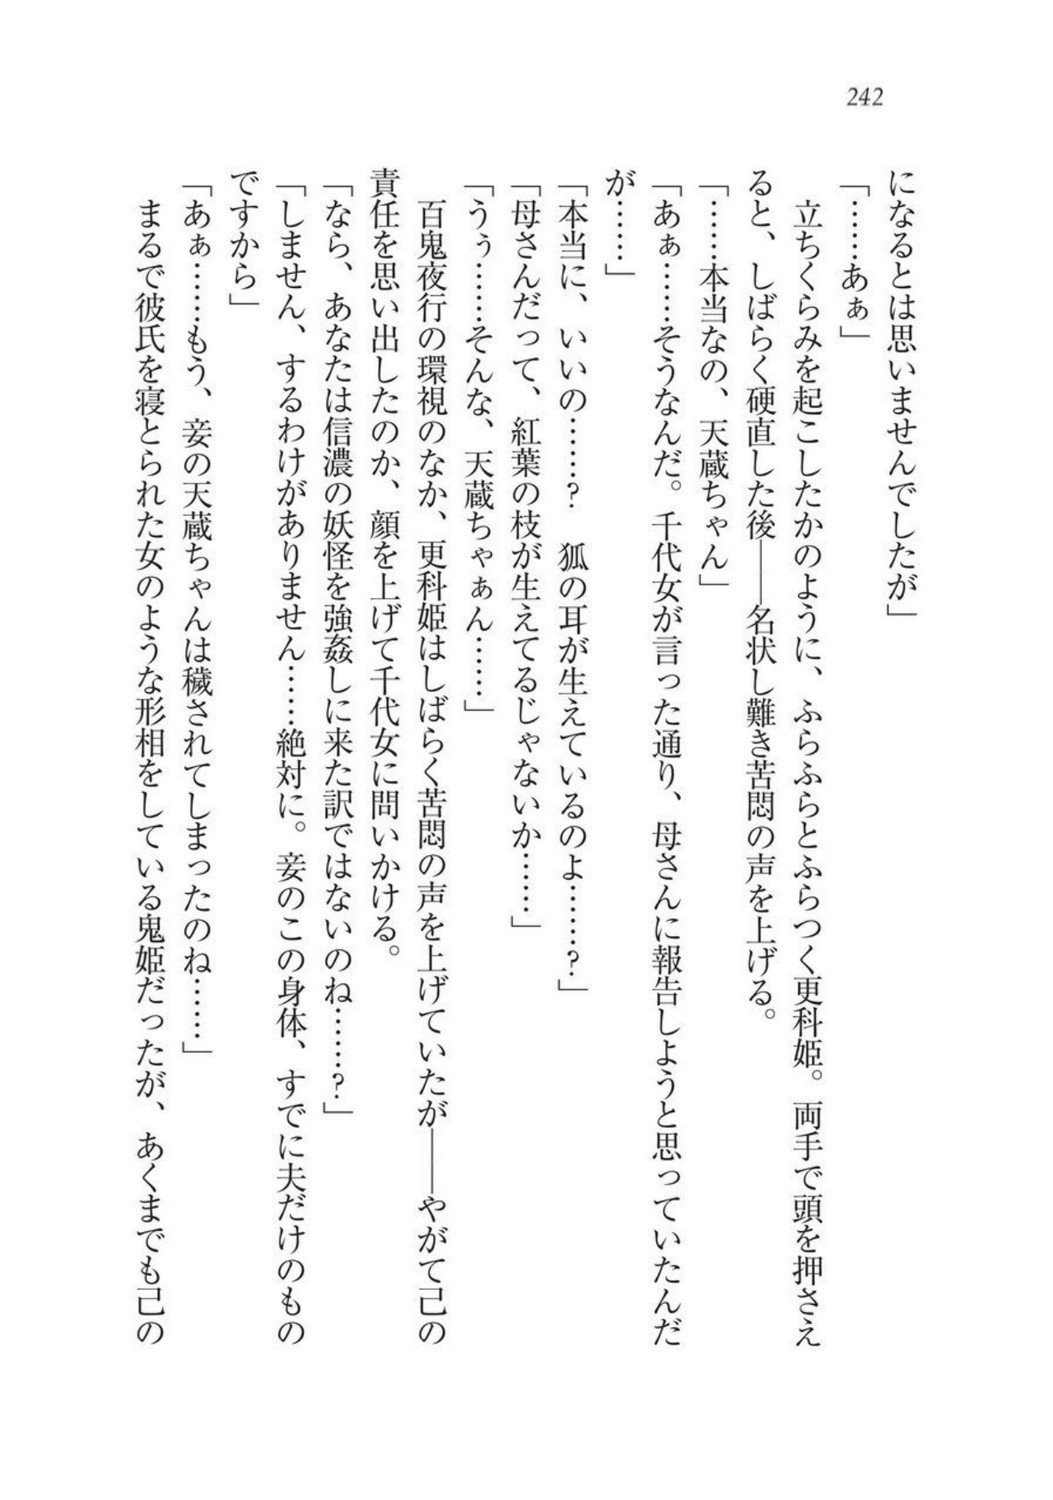 242
になるとは思いませんでしたが」
「……あぁ」
　立ちくらみを起こしたかのように、ふらふらとふらつく更科姫。両手で頭を押さえ
ると、しばらく硬直した後――名状し難き苦悶の声を上げる。
「……本当なの、天蔵ちゃん」
「あぁ……そうなんだ。千代女が言った通り、母さんに報告しようと思っていたんだ
が……」
「本当に、いいの……？　狐の耳が生えているのよ……？」
「母さんだって、紅葉の枝が生えてるじゃないか……」
「うぅ……そんな、天蔵ちゃぁん……」
　百鬼夜行の環視のなか、更科姫はしばらく苦悶の声を上げていたが――やがて己の
責任を思い出したのか、顔を上げて千代女に問いかける。
「なら、あなたは信濃の妖怪を強姦しに来た訳ではないのね……？」
「しません、するわけがありません……絶対に。妾のこの身体、すでに夫だけのもの
ですから」
「あぁ……もう、妾の天蔵ちゃんは穢されてしまったのね……」
　まるで彼氏を寝とられた女のような形相をしている鬼姫だったが、あくまでも己の